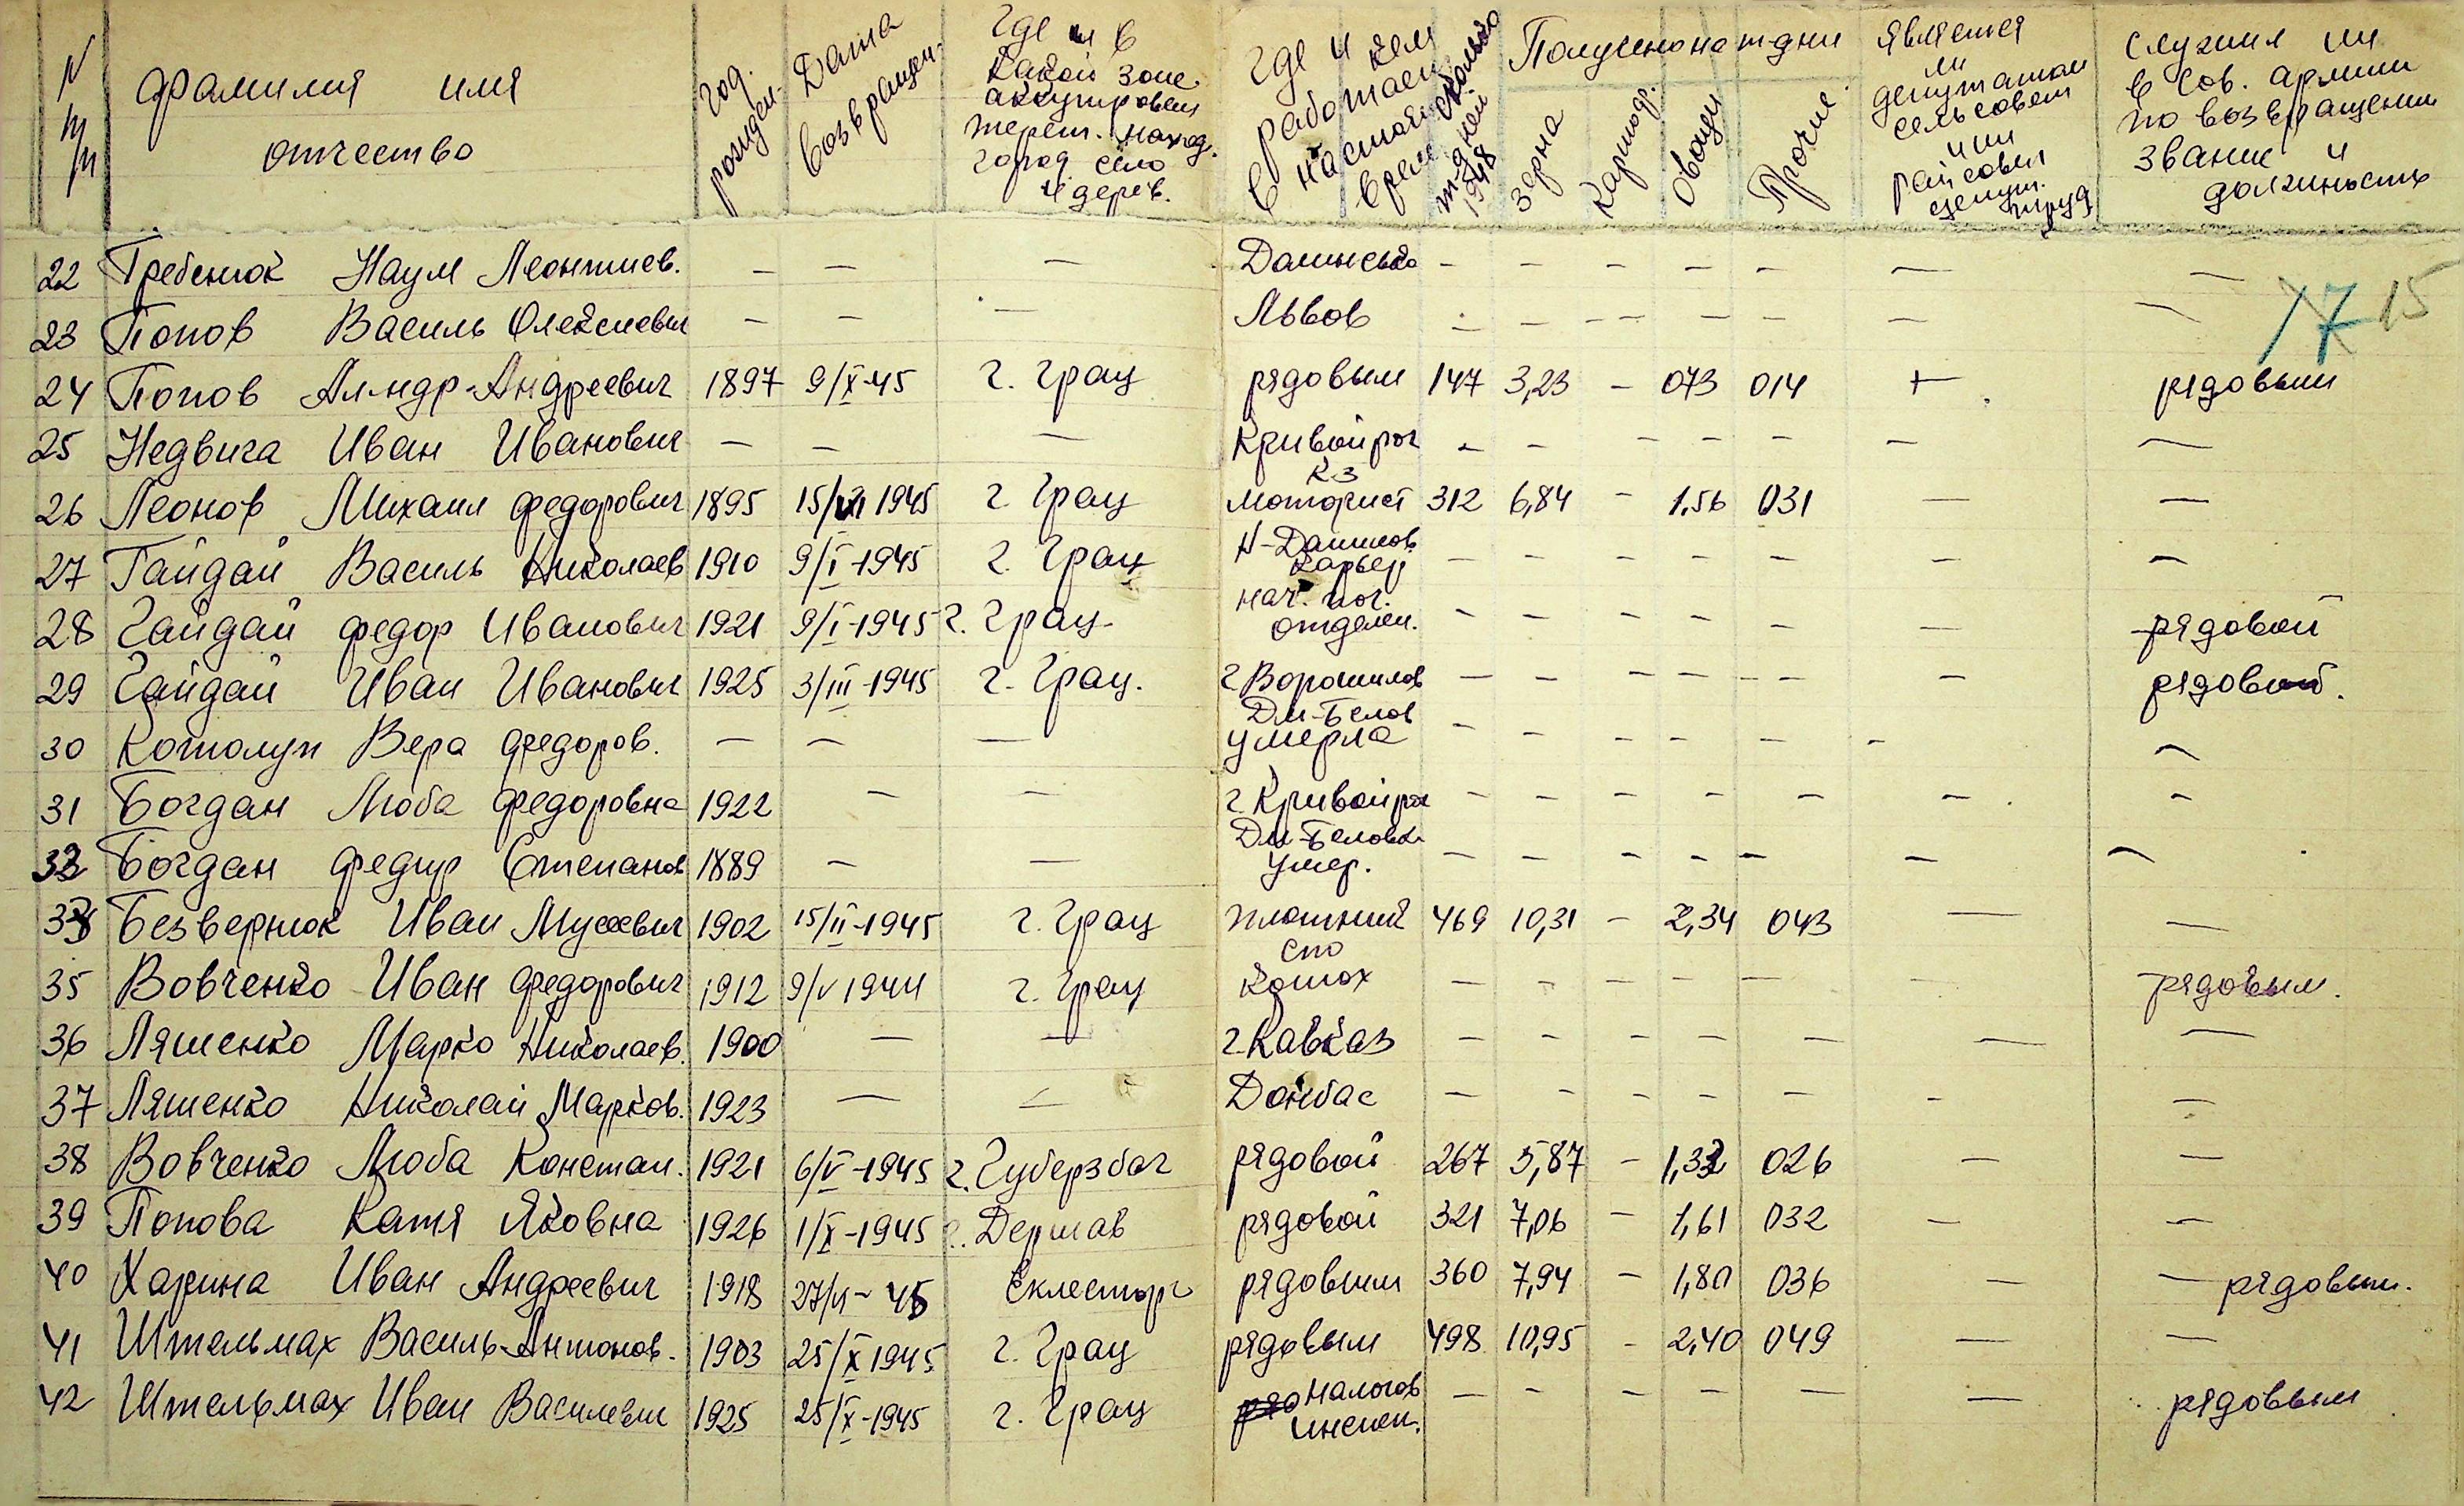 N п/п фамилия имя отчество год. рожден. Дата возвращен. Где и в какой зоне аккупирован терет. наход. город село и дерев. Где и кем работает в настоящ. врем сколько т-дней 1948 Получено на т-дни зерна Картоф. Овощи Прочие является ли депутатом сельсовет или райсовет депут. труд служил ли в Сов. армии по возвращении звание и должность
22 Гребенюк Наум Леонтиев. — — — Долинська - - - - - — —
17 15
23 Попов Василь Олексиевич — — — Львов - - - - - - — —
24 Попов Алмдр-Андреевич 1897 9/X-45 г. Грац рядовым 147 3,23 - 073 014 + рядовым
25 Недвига Иван Иванович — — — Кривойрог - - - - - — —
26 Леонов Михаил федорович 1895 15/VI 1945 г. Грац КЗ моторист 312 6,84 - 1.56 031 — —
27 Гайдай Василь Николаев 1910 9/I-1945 г. Грац Н-Данилов. Карьер - - - - - — —
28 Гайдай федор Иванович 1921 9/I-1945 г. Грац- нач. пог. отделен. - - - - - — рядовой
29 Гайдай Иван Иванович 1925 3/III-1945 г. Грац. г Ворошилов - - - - - - — рядовой.
30 Котолуп Вера федоров. — — — Дм-Белов умерла - - - - - - —
31 Богдан Люба федоровна 1922 — — г Кривойрог - - - - - — -
32 Богдан федир Степанов 1889 — — Дм-Беловка Умер. - - - - - — —
33 Безвернюк Иван Мусеевич 1902 15/II-1945 г. Грац плотник 469 10,31 - 2,34 043 — —
35 Вовченко Иван федорович 1912 9/V 1944 г. Грац спо конюх - - - - - — рядовым.
36 Ляшенко Марко Николаев. 1900 — — г.Кавказ - - - - - — —
37 Ляшенко Николай Марков. 1923 — — Донбас - - - - - - —
38 Вовченко Люба Констан. 1921 6/V-1945 г. Губерзбог рядовой 267 5,87 - 1,33 026 — —
39 Попова Катя Яковна 1926 1/X-1945 г. Держав рядовой 321 7,06 - 1,61 032 — —
40 Харина Иван Андреевич 1918 27/VI- 45 Еклесторг рядовым 360 7,94 - 1,80 036 — — рядовым.
41 Штельмах Василь-Антонов. 1903 25/X 1945 г. Грац рядовым 498 10,95 - 2,40 049 — —
42 Штельмах Иван Василевич 1925 25/X-1945 г. Грац налогов инспек. - - - - — — рядовым